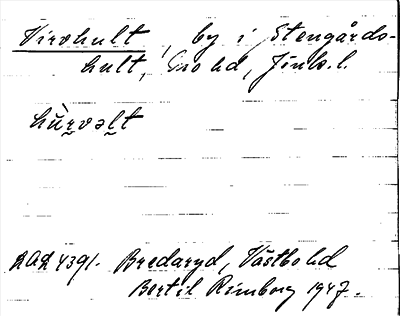 Virvhult, by i Stengårds-
hult, Mo hd, Jönk. l.
hùrvəl̥t
DAL 4391. Bredaryd, Västbo hd
Bertil Rimborg 1947.